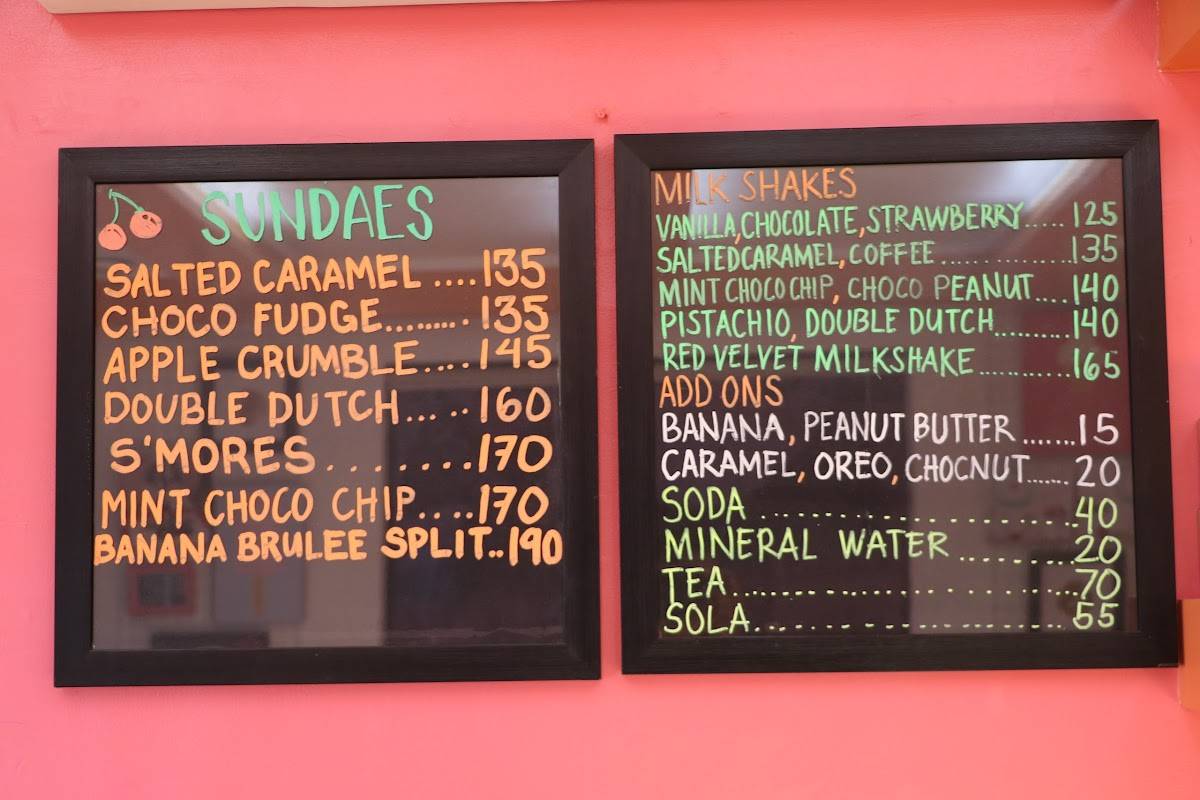 SUNDAES
SALTED CARAMEL ....135
CHOCO FUDGE.........135
APPLE CRUMBLE....145
DOUBLE DUTCH.....160
S'MORES........170
MINT CHOCO CHIP....170
BANANA BRULEE SPLIT..190
MILK SHAKES
VANILLA,CHOCOLATE,STRAWBERRY.....125
SALTEDCARAMEL, COFFEE...............135
MINT CHOCO CHIP, CHOCO PEANUT....140
PISTACHIO, DOUBLE DUTCH..........140
RED VELVET MILKSHAKE............165
ADD ONS
BANANA, PEANUT BUTTER.......15
CARAMEL, OREO, CHOCNUT.......20
SODA........................40
MINERAL WATER..........20
TEA.........................70
SOLA.......................55